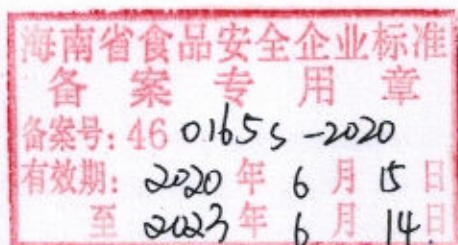 海南省食品安全企业标准
备案专用章
备案号: 46 0165S-2020
有效期: 2020年6月15日
至2023年6月14日